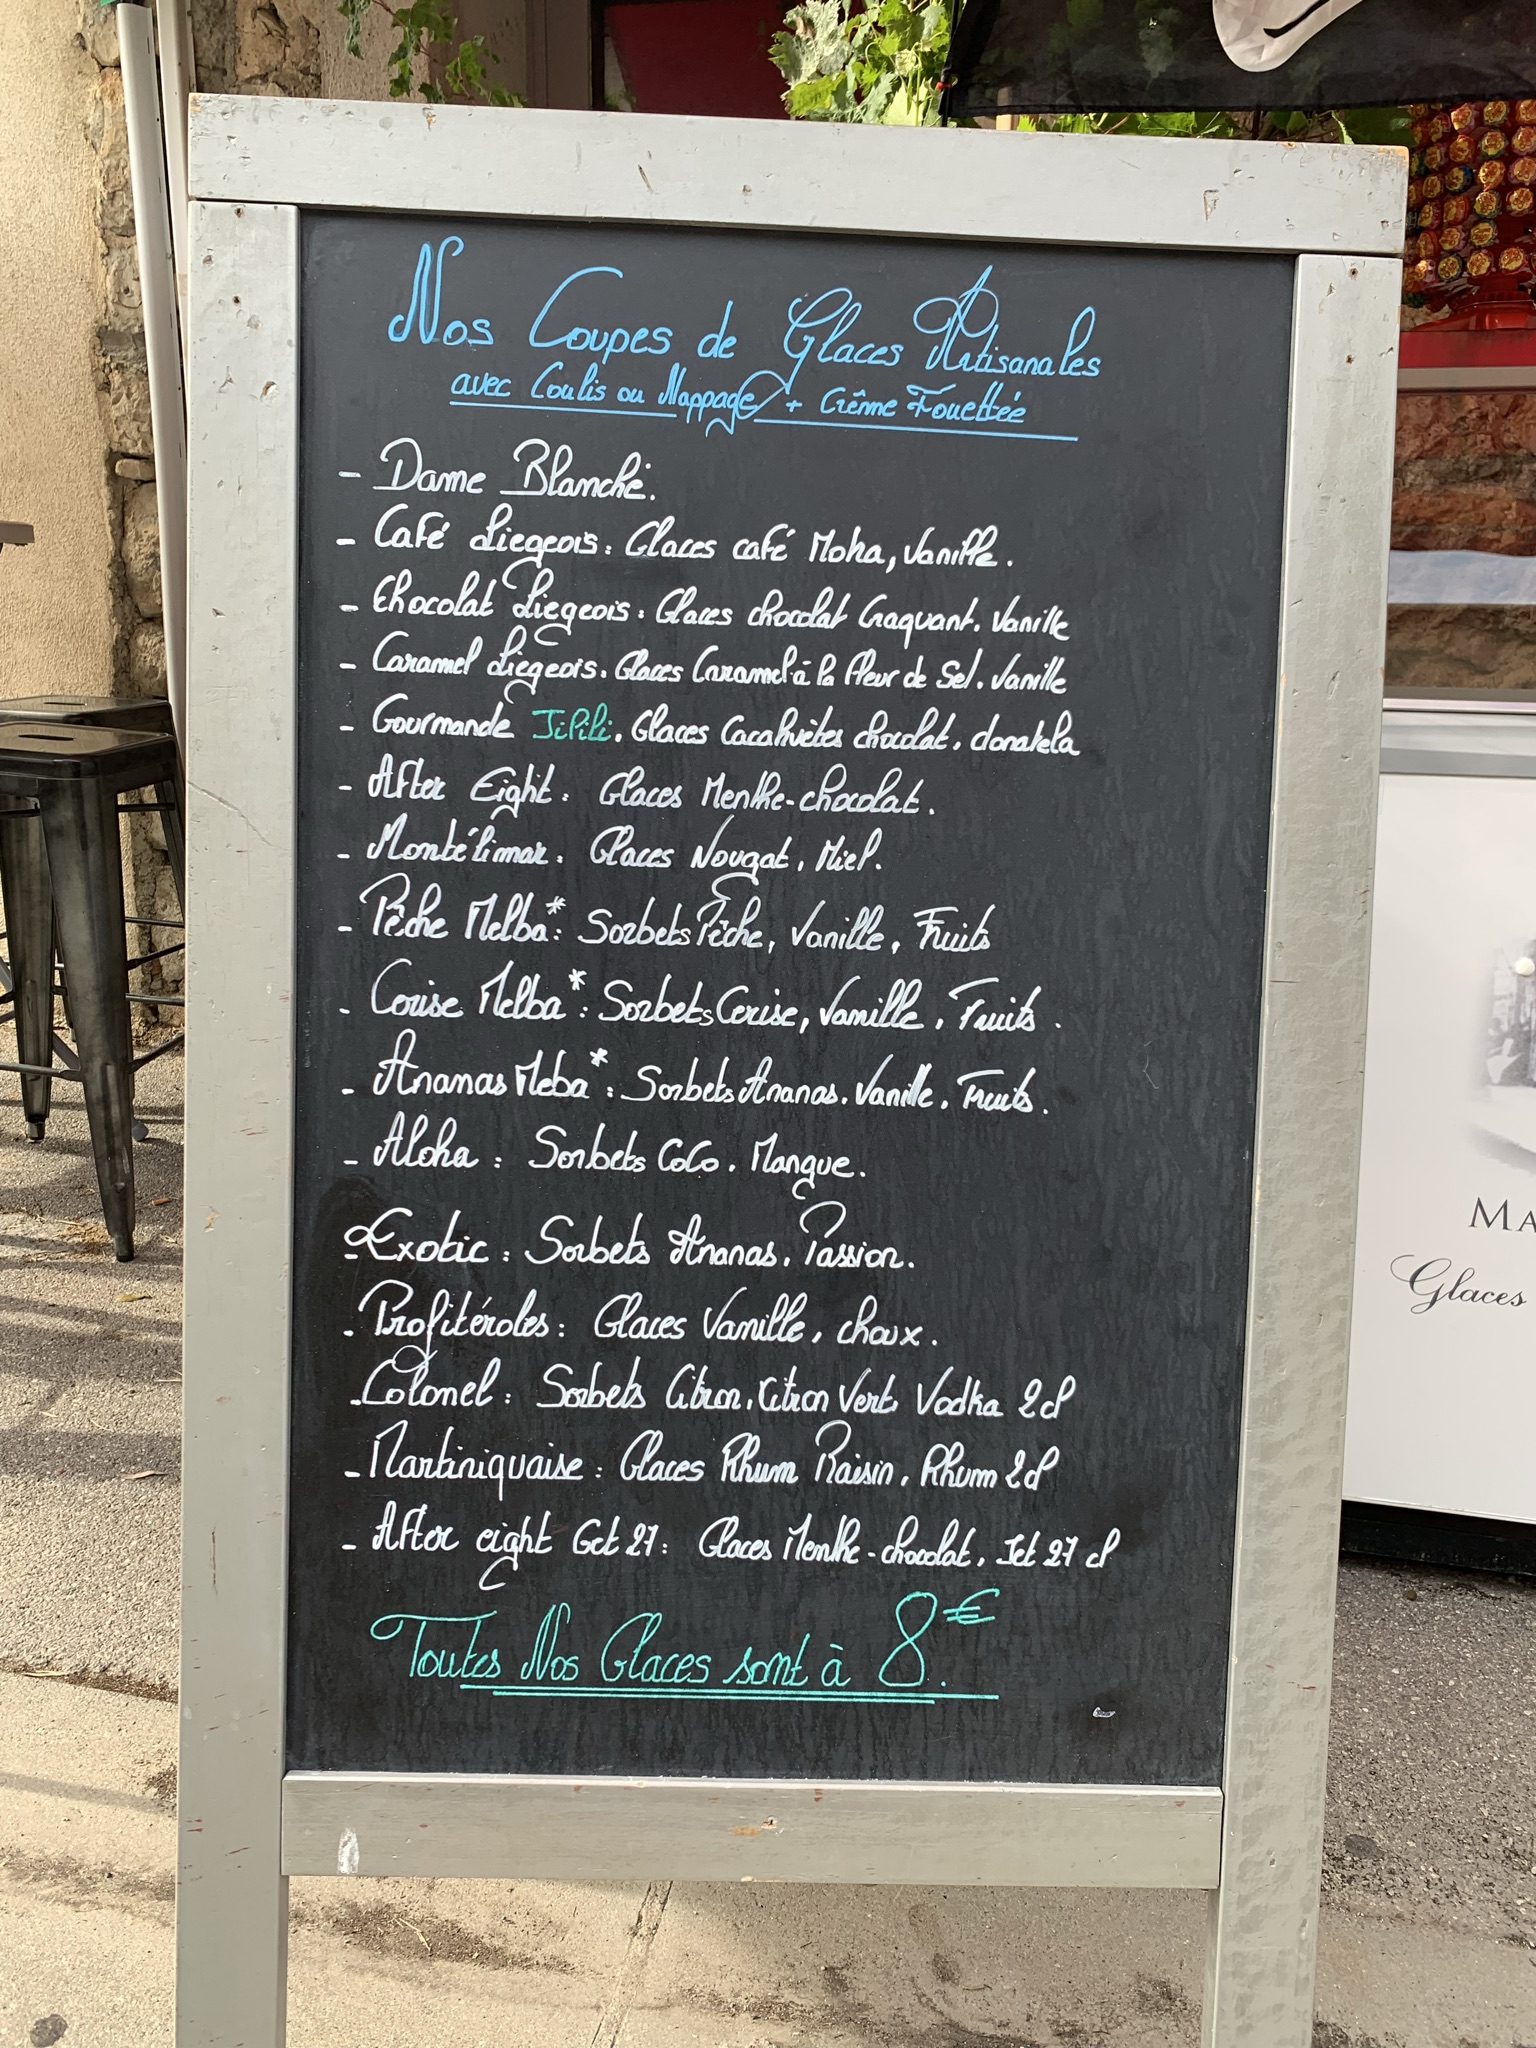 Nos Coupes de Glaces Artisanales
avec Coulis ou Nappage + Crême Fouettée
- Dame Blanche.
- Café Liegeois : Glaces café Moka, Vanille.
- Chocolat Liegeois : Glaces chocolat Craquant. Vanille
- Caramel Liegeois. Glaces Caramel à la fleur de Sel. Vanille
- Gourmande Jilili. Glaces Cacahuètes chocolat, donatela
- After Eight : Glaces Menthe-chocolat.
- Montélimar : Glaces Nougat, Miel.
- Pêche Melba* : Sorbets Pêche, Vanille, Fruits
- Cerise Melba* : Sorbets Cerise, Vanille, Fruits.
- Ananas Meba* : Sorbets Ananas. Vanille, Fruits.
- Aloha : Sorbets CoCo. Mangue.
- Exotic : Sorbets Ananas. Passion.
- Profitéroles : Glaces Vanille, choux.
- Colonel : Sorbets Citron, Citron Vert, Vodka 2cl
- Martiniquaise : Glaces Rhum Raisin, Rhum 2cl
- After eight Get 27 : Glaces Menthe-chocolat, Jet 27 cl
Toutes Nos Glaces sont à 8€.
MA
Glaces